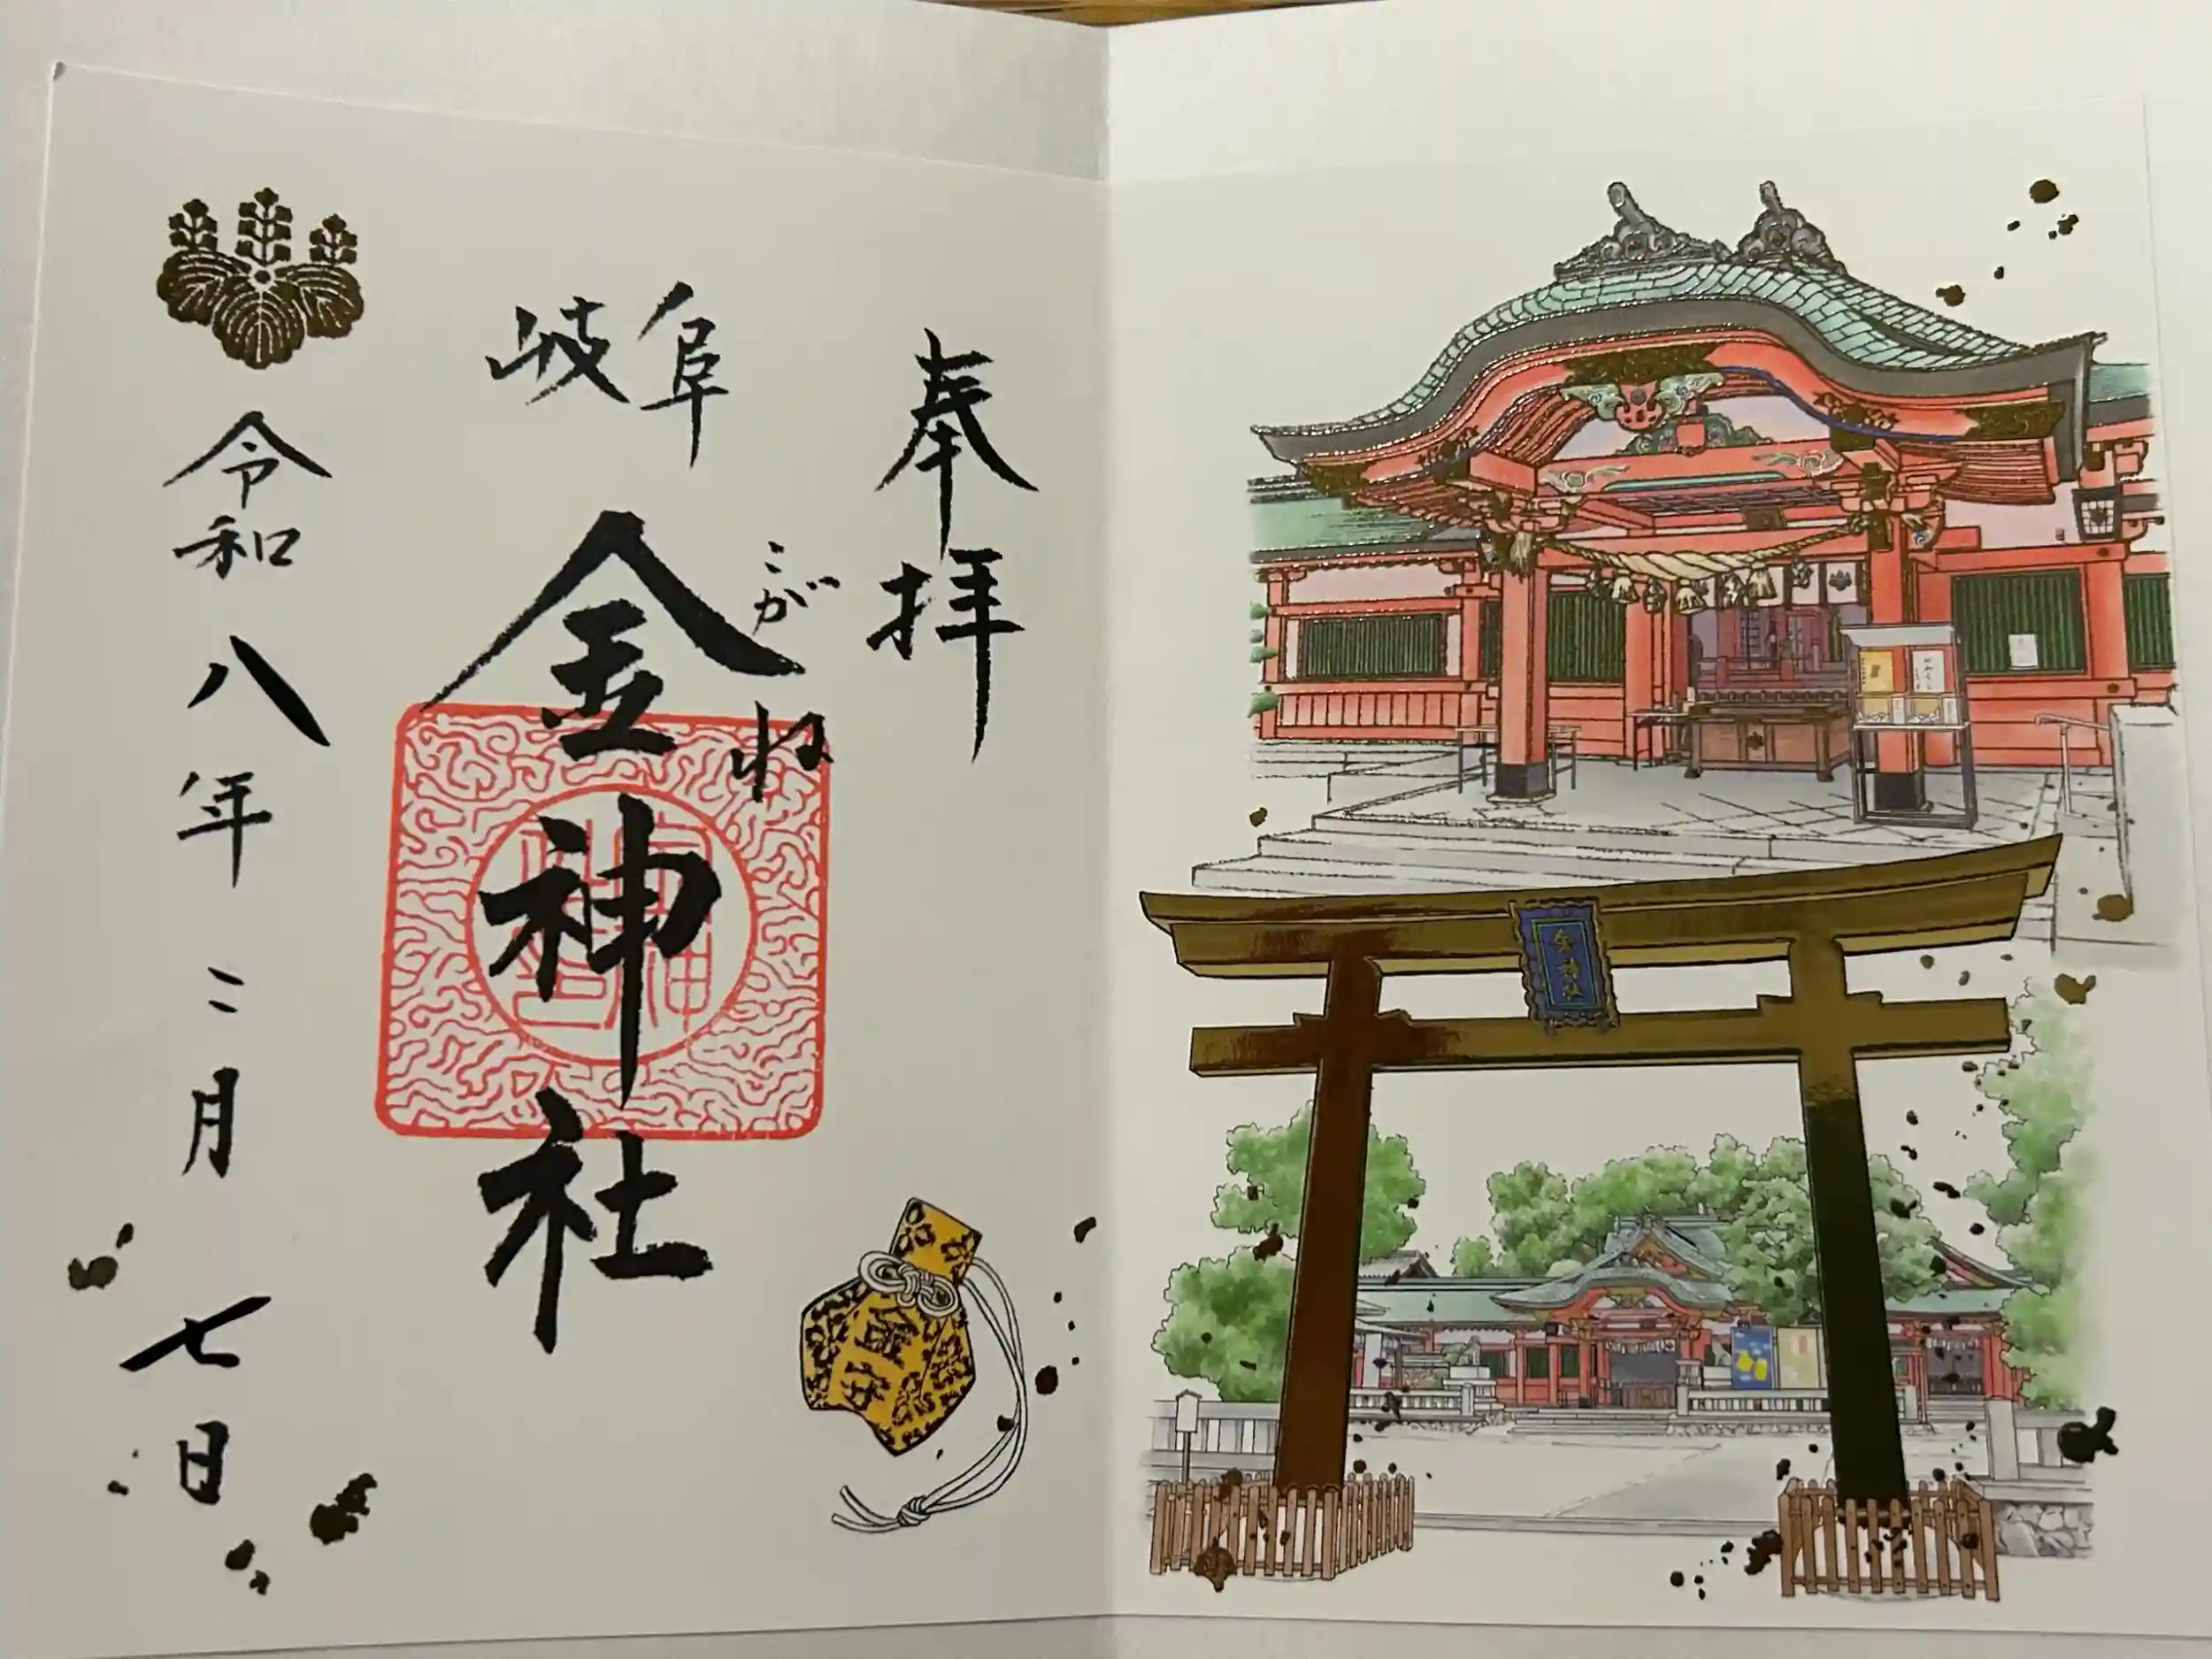 奉拝
岐阜
こがね
金神社
令和八年二月七日
金守
金神社